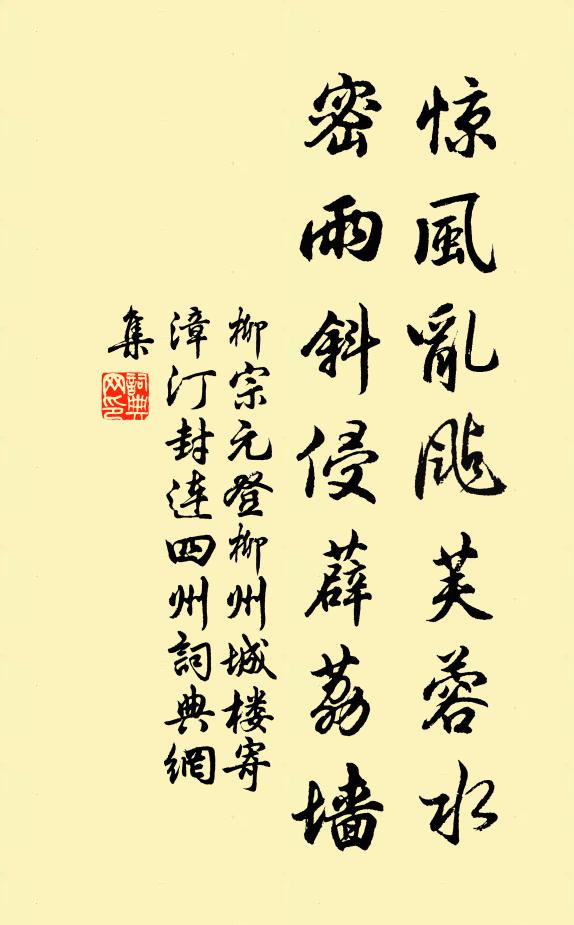 惊風亂飐芙蓉水
密雨斜侵薜荔墙
柳宗元登柳州城楼寄
漳汀封連四州詞典網
集
詞典
网印